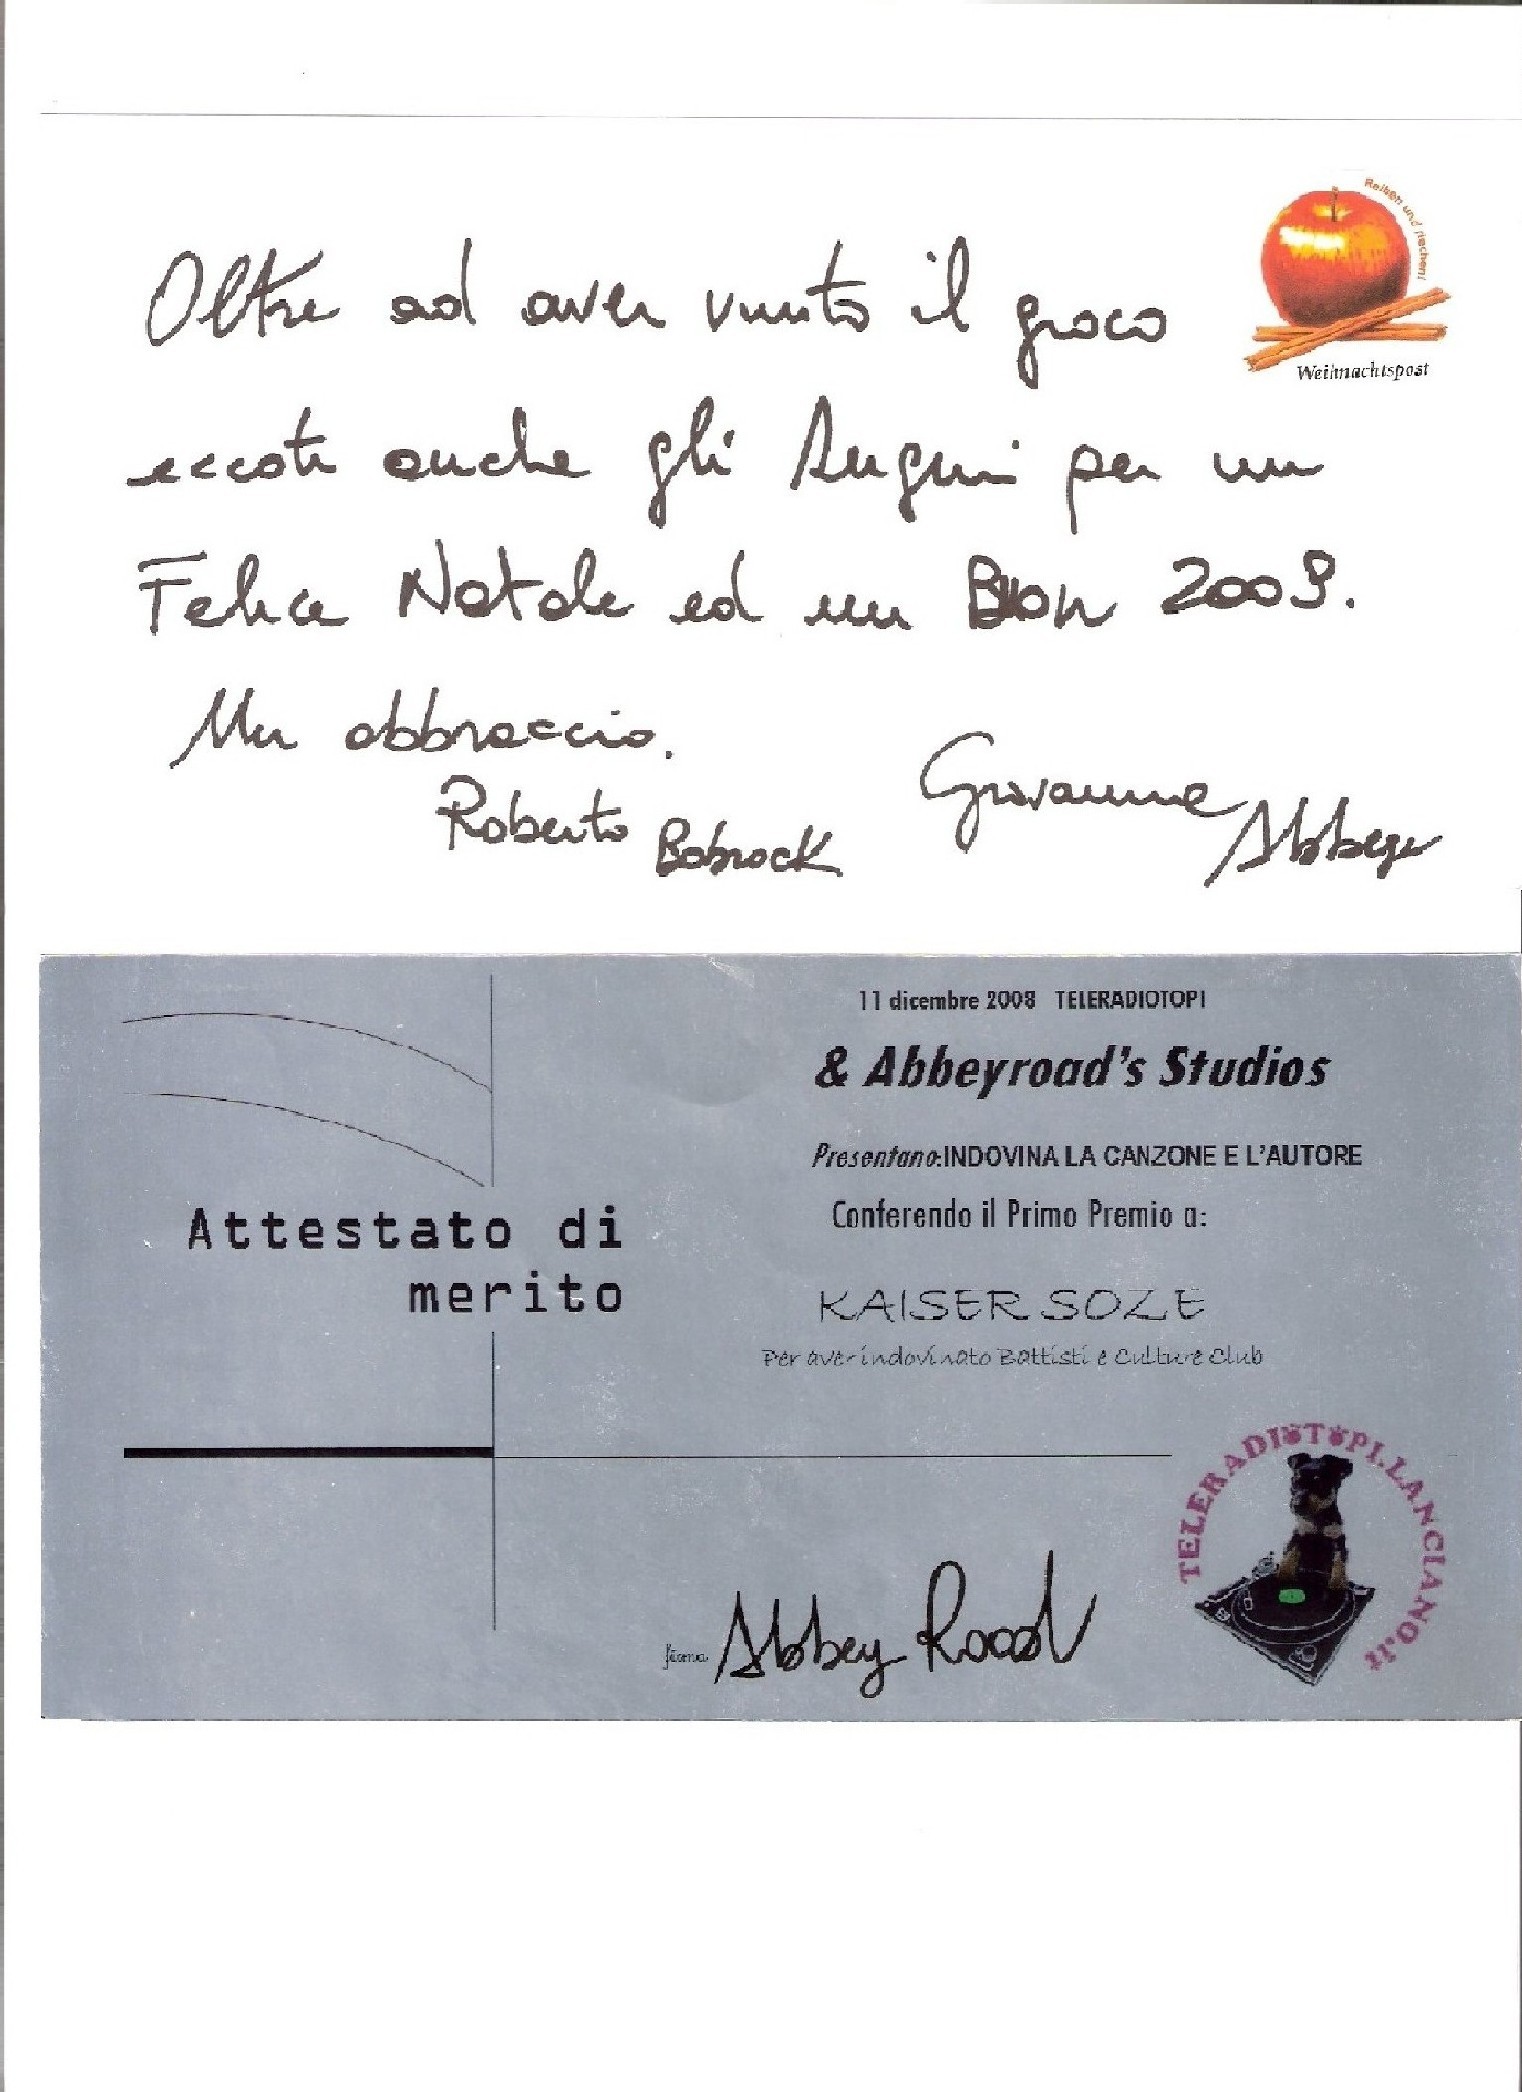 Reiben und riechen!
Weihnachtspost
Oltre ad aver vinto il gioco
eccoti anche gli Auguri per un
Felice Natale ed un Buon 2009.
Un abbraccio.
Roberto Bobrock
Giovanni Abbey
11 dicembre 2008 TELERADIOTOPI
& Abbeyroad's Studios
Presentano:INDOVINA LA CANZONE E L'AUTORE
Conferendo il Primo Premio a:
Attestato di
merito
KAISER SOZE
Per aver indovinato Battisti e Culture Club
TELERADIOTOPI.LANCIANO.it
firma Abbey Road